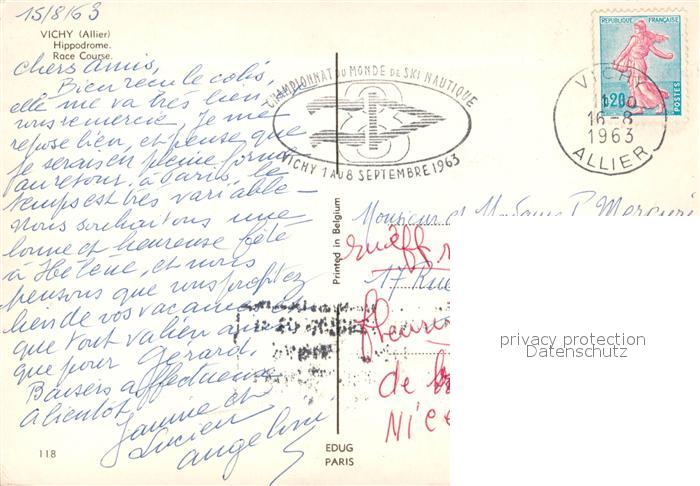 15/8/63
VICHY (Allier)
Hippodrome.
Race Course.
Chers amis,
Bien reçu le colis,
elle me va très bien,
vous remercie. Je me
repose bien, et pense que
je serais en pleine forme
au retour. à Paris, le
temps est très variable
Nous souhaitons une
bonne et heureuse fête
à Hélène, et nous
pensons que vous profitez
bien de vos vacances
que tout va bien
que pour Gérard.
Baisers affectueux
à bientôt
Janine et
Lucien
118
CHAMPIONNAT DU MONDE DE SKI NAUTIQUE
VICHY 1 AU 8 SEPTEMBRE 1963
REPUBLIQUE FRANÇAISE
0,20
POSTES
VICHY
16-8
1963
ALLIER
Printed in Belgium
Monsieur et Madame P. Mercuri
17 Rue
de
NICE
EDUG
PARIS
privacy protection
Datenschutz